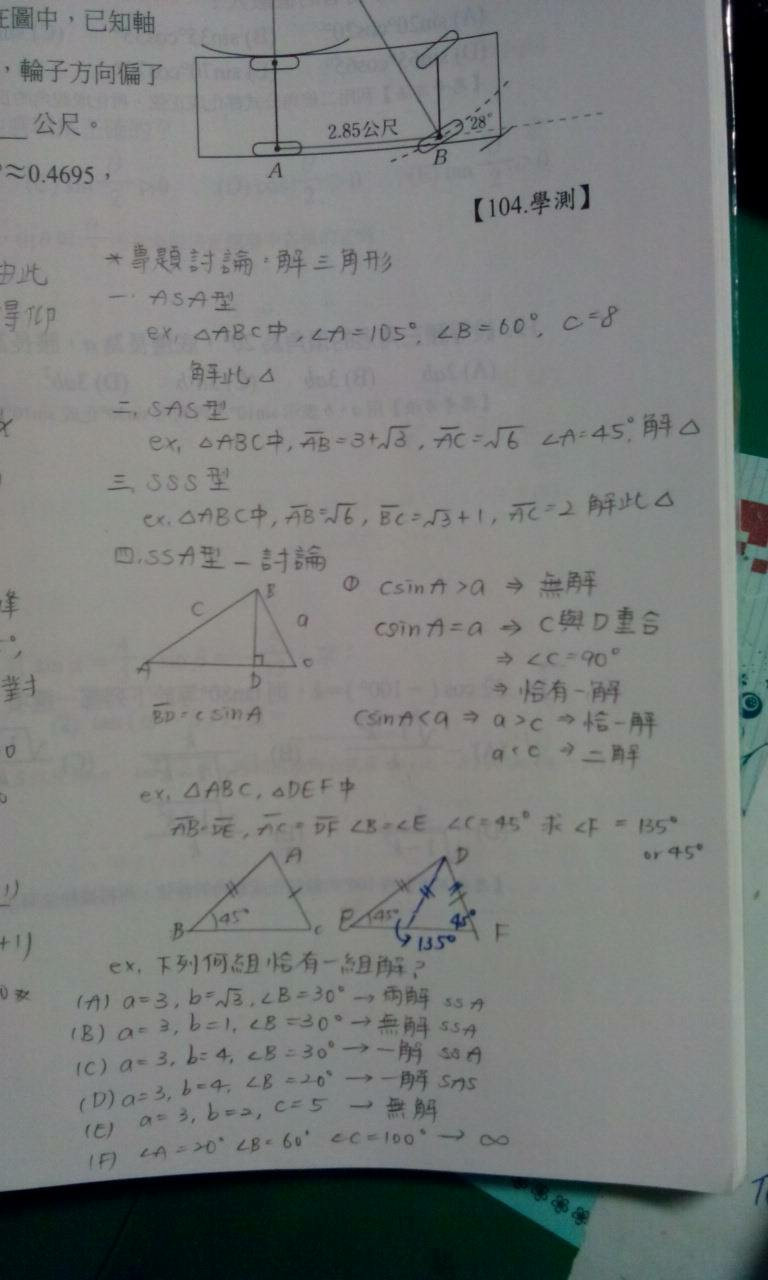 在圖中，已知軸
，輪子方向偏了
公尺。
≈0.4695，
2.85公尺
28°
A
B
【104.學測】
由此
＊專題討論：解三角形
一. ASA型
ex, △ABC中, ∠A=105°, ∠B=60°, C=8
解此△
二. SAS型
ex, △ABC中, AB=3+√3, AC=√6 ∠A=45°, 解△
三. SSS型
ex. △ABC中, AB=√6, BC=√3+1, AC=2 解此△
四. SSA型－討論
① csinA>a ⇒ 無解
csinA=a ⇒ C與D重合
⇒ ∠C=90°
⇒ 恰有一解
csinA<a ⇒ a>c ⇒ 恰一解
a<c ⇒ 二解
B
C
a
A
D
C
BD=csinA
ex, △ABC, △DEF中
AB=DE, AC=DF ∠B=∠E ∠C=45° 求∠F = 135°
or 45°
A
B
45°
C
D
E
45°
45°
F
135°
ex, 下列何組恰有一組解?
(A) a=3, b=√3, ∠B=30° → 兩解 SSA
(B) a=3, b=1, ∠B=30° → 無解 SSA
(C) a=3, b=4, ∠B=30° → 一解 SSA
(D) a=3, b=4, ∠B=20° → 一解 SAS
(E) a=3, b=2, c=5 → 無解
(F) ∠A=20° ∠B=60° ∠C=100° → ∞